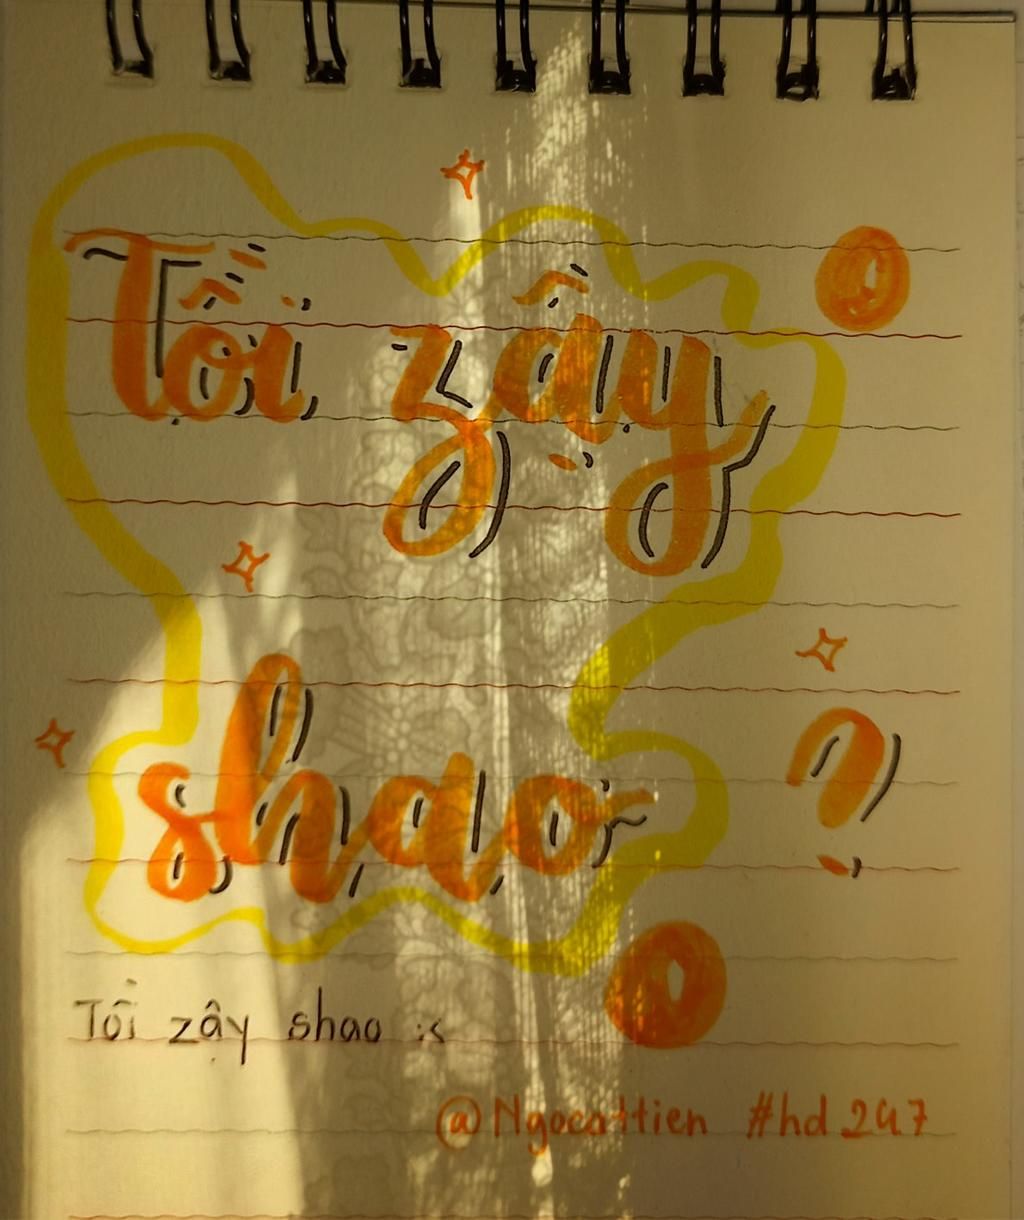 Tồi zậy
shao ?
Tồi zậy shao :<
@Ngocattien #hd247